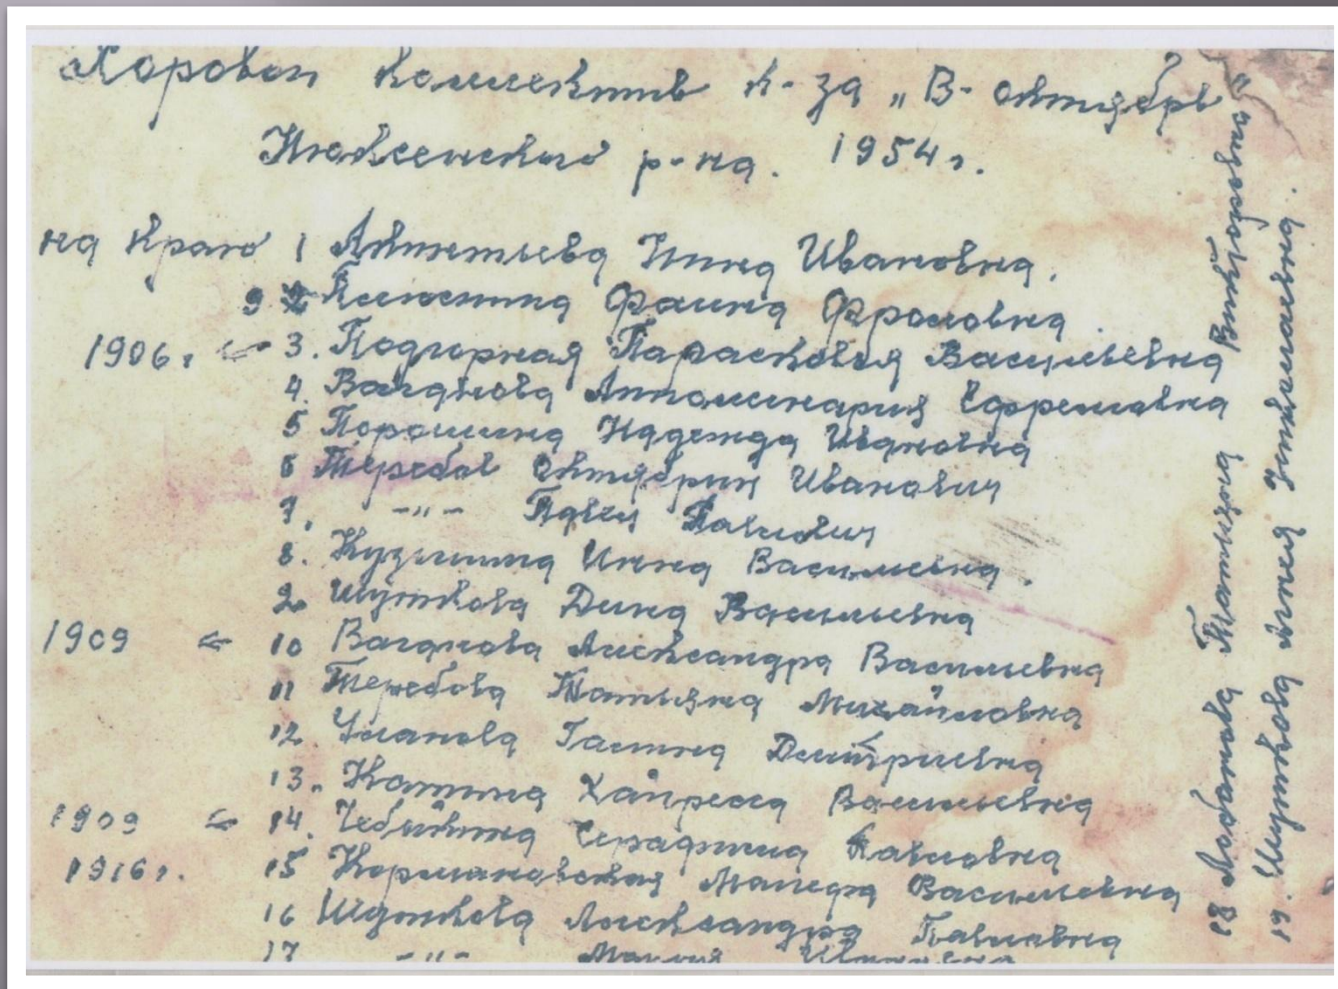 Хоровой коллектив к-за „В-октябрь"
Нюксенского р-на. 1954г.
на краю 1 Ивановна.
9 2 Клюкина Фаина Фроловна.
1906г ← 3. Подгорная Парасковья Васильевна
4. Ваганова Апполинария Ефремовна
5 Порошина Надежда Ивановна
6 Теребов Октябрин Иванович
7. -"- Павел Павлович
8. Кузьмина Инна Васильевна.
9. Шушкова Дина Васильевна
1909 ← 10 Ваганова Александра Васильевна
11 Теребова Татьяна Михайловна
12 Уланова Галина Дмитриевна
13. Васильевна
1909 ← 14. Серафима Павловна
1916г. 15 Кормановская Манефа Васильевна
16 Шушкова Александра Павловна
17 -"- Мария Ивановна
18 Лобанова Викторовна
19. Шушкова Агнея